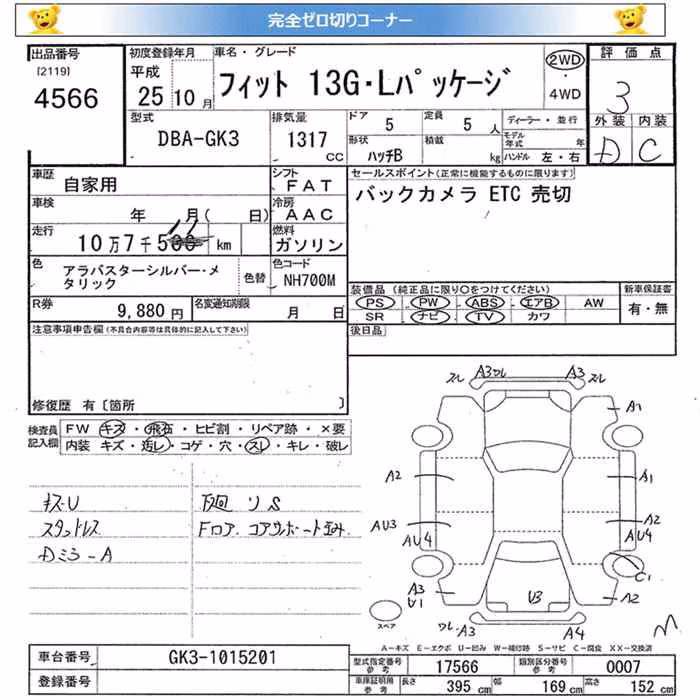 完全ゼロ切りコーナー
出品番号
[2119]
4566
初度登録年月
平成
25 10 月
車名・グレード
フィット 13G・Lパッケージ
2WD
・
4WD
評価点
3
外装 内装
D C
型式
DBA-GK3
排気量
1317
cc
ドア
5
定員
5 人
形状
ハッチB
積載
kg
ディーラー・並行
モデル年式 年
ハンドル 左・右
車歴
自家用
シフト
FAT
車検
年 月( 日)
冷房
AAC
走行
10万7千 km
燃料
ガソリン
色
アラバスターシルバー・メタリック
色替
色コード
NH700M
R券
9,880 円
名変通知期限
月 日
セールスポイント(正常に機能するものに限ります)
バックカメラ ETC 売切
装備品 (純正品に限り○をつけてください)
PS PW ABS エアB AW
SR ナビ TV カワ
新車保証書
有・無
後日品
注意事項申告欄(不具合内容等は具体的に記入して下さい)
修復歴 有〔箇所 〕
検査員
記入欄
FW キズ・飛石・ヒビ割・リペア跡・×要
内装 キズ・汚レ・コゲ・穴・スレ・キレ・破レ
キズU
スタッドレス
Dミラ-A
下廻 リS
Fロア. コアサポート歪み
スレ A3ワレ A3 スレ
A1
A2 A1
AU3 A2
AU4 AU4
C1
A3 A2
U1 U3
ワレ A3 A4
スペア
A-キズ E-エクボ U-凹み W-補修跡 S-サビ C-腐食 XX-交換済
車台番号
GK3-1015201
登録番号
型式指定番号
参考
17566
類別区分番号
参考
0007
車庫証明用
参考
長さ 395 cm
幅 169 cm
高さ 152 cm